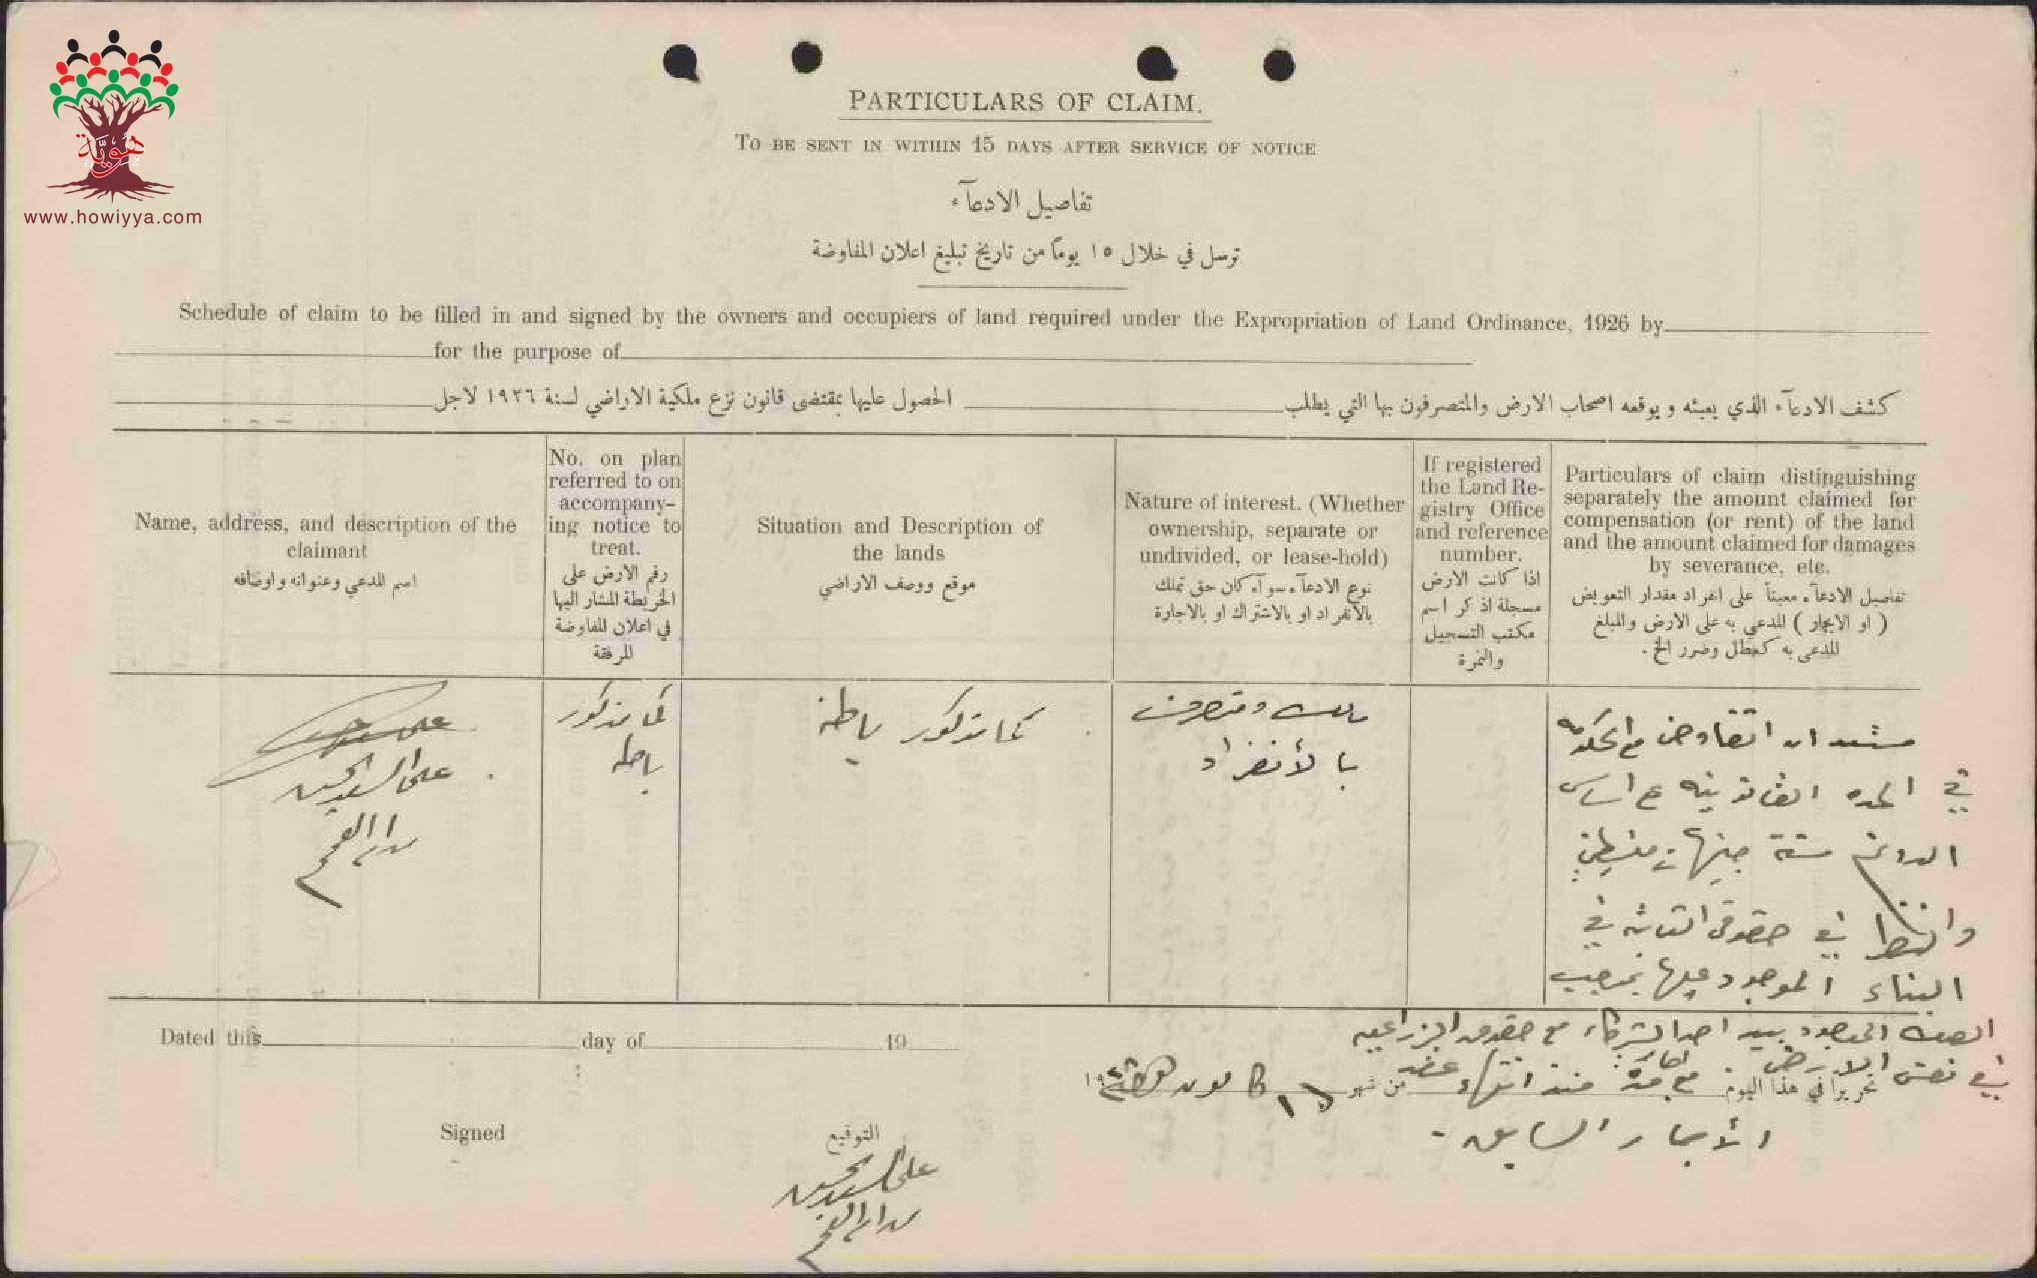 هويّة
www.howiyya.com
PARTICULARS OF CLAIM.
TO BE SENT IN WITHIN 15 DAYS AFTER SERVICE OF NOTICE
تفاصيل الادعآء
ترسل في خلال ١٥ يوماً من تاريخ تبليغ اعلان المفاوضة
Schedule of claim to be filled in and signed by the owners and occupiers of land required under the Expropriation of Land Ordinance, 1926 by
for the purpose of
كشف الادعآء الذي يعبئه ويوقعه اصحاب الارض والمتصرفون بها التي يطلب الحصول عليها بمقتضى قانون نزع ملكية الاراضي لسنة ١٩٢٦ لاجل
Name, address, and description of the
claimant
اسم المدعي وعنوانه واوصافه
No. on plan
referred to on
accompany-
ing notice to
treat.
رقم الارض على
الخريطة المشار اليها
في اعلان المفاوضة
المرفقة
Situation and Description of
the lands
موقع ووصف الاراضي
Nature of interest. (Whether
ownership, separate or
undivided, or lease-hold)
نوع الادعآء سوآء كان حق تملك
بالانفراد او بالاشتراك او بالاجارة
If registered
the Land Re-
gistry Office
and reference
number.
اذا كانت الارض
مسجلة اذكر اسم
مكتب التسجيل
والنمرة
Particulars of claim distinguishing
separately the amount claimed for
compensation (or rent) of the land
and the amount claimed for damages
by severance, etc.
تفاصيل الادعآء مبيناً على انفراد مقدار التعويض
( او الايجار ) المدعى به على الارض والمبلغ
المدعى به كعطل وضرر الخ .
علي السيد الحسين
كما مذكور
باطنه
كما مذكور باطنه
مالك ومتصرف
بالأنفراد
مستعد ان اتفاوض مع الحكومه
في المده القانونيه على اساس
الدونم ستة جنيهات فلسطيني
في حقوقي الثابته في
البناء الموجود عليها بموجب
احد الشركاء مع حقوق الزراعيه
في نفس الارض
منذ انتهاء عقد
الأيجار السابق -
Dated this day of 19
تحريراً في هذا اليوم من شهر ١٩
Signed
التوقيع
علي السيد الحسين